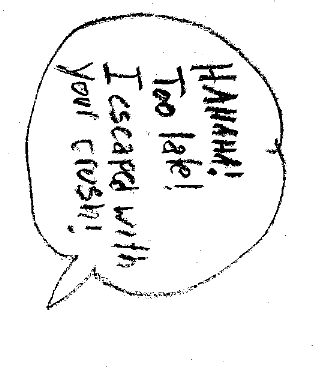 HAHAHA!
Too late!
I escaped with
your crush!